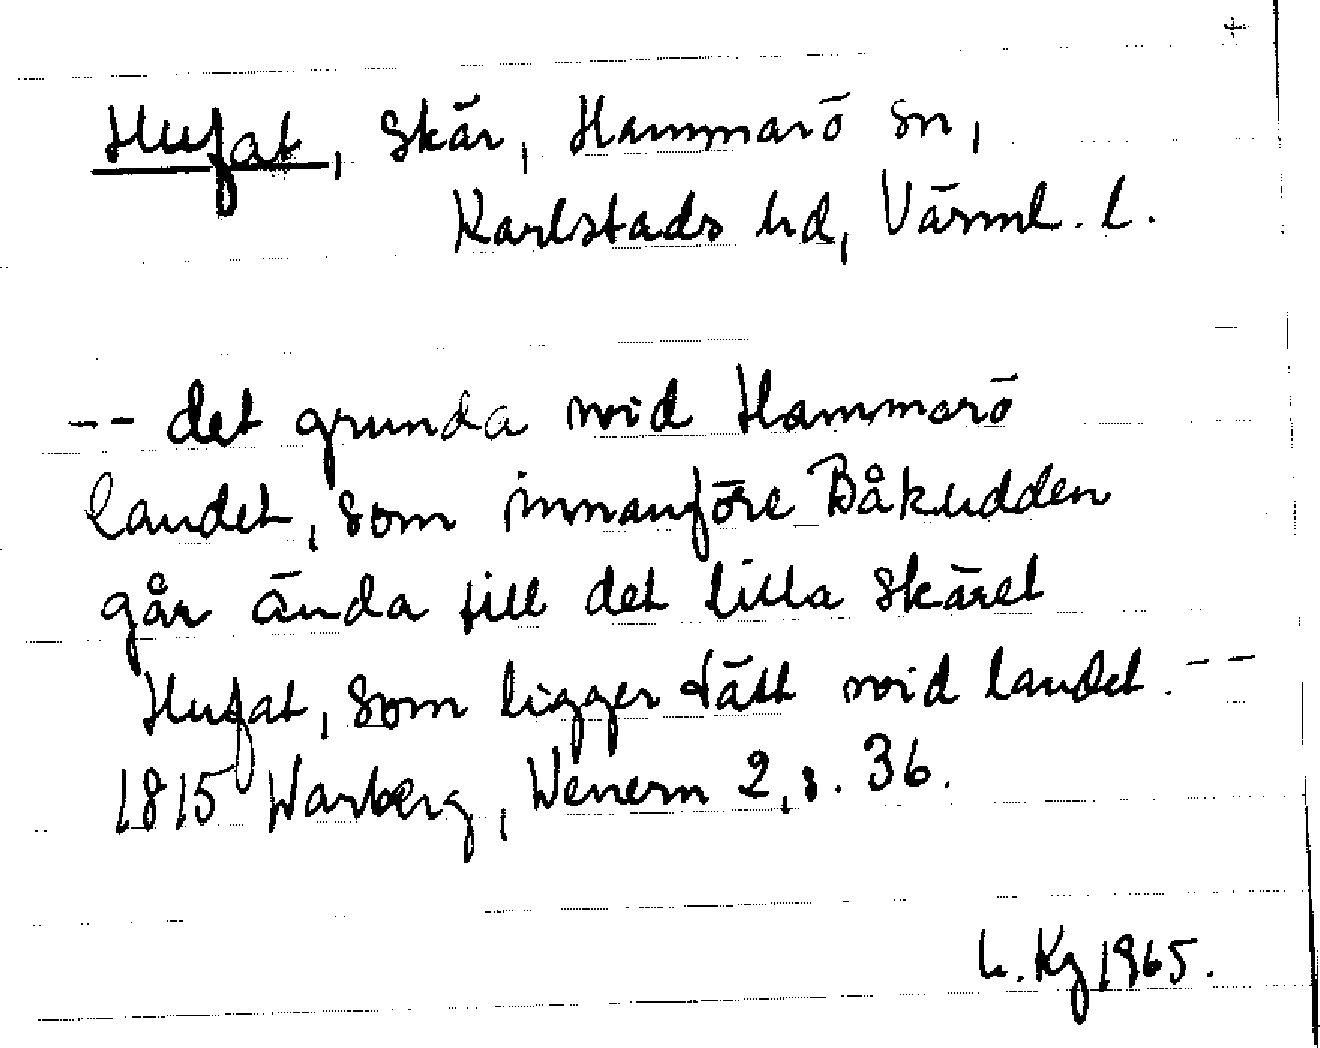 +
Hufat, skär, Hammarö sn,
Karlstads hd, Värml. l.
-- det grunda wid Hammarö
landet, som innanföre Båkudden
går ända till det lilla skäret
Hufat, som ligger tätt wid landet. --
1815 Warberg, Wenern 2, s. 36.
L. Kg 1965.